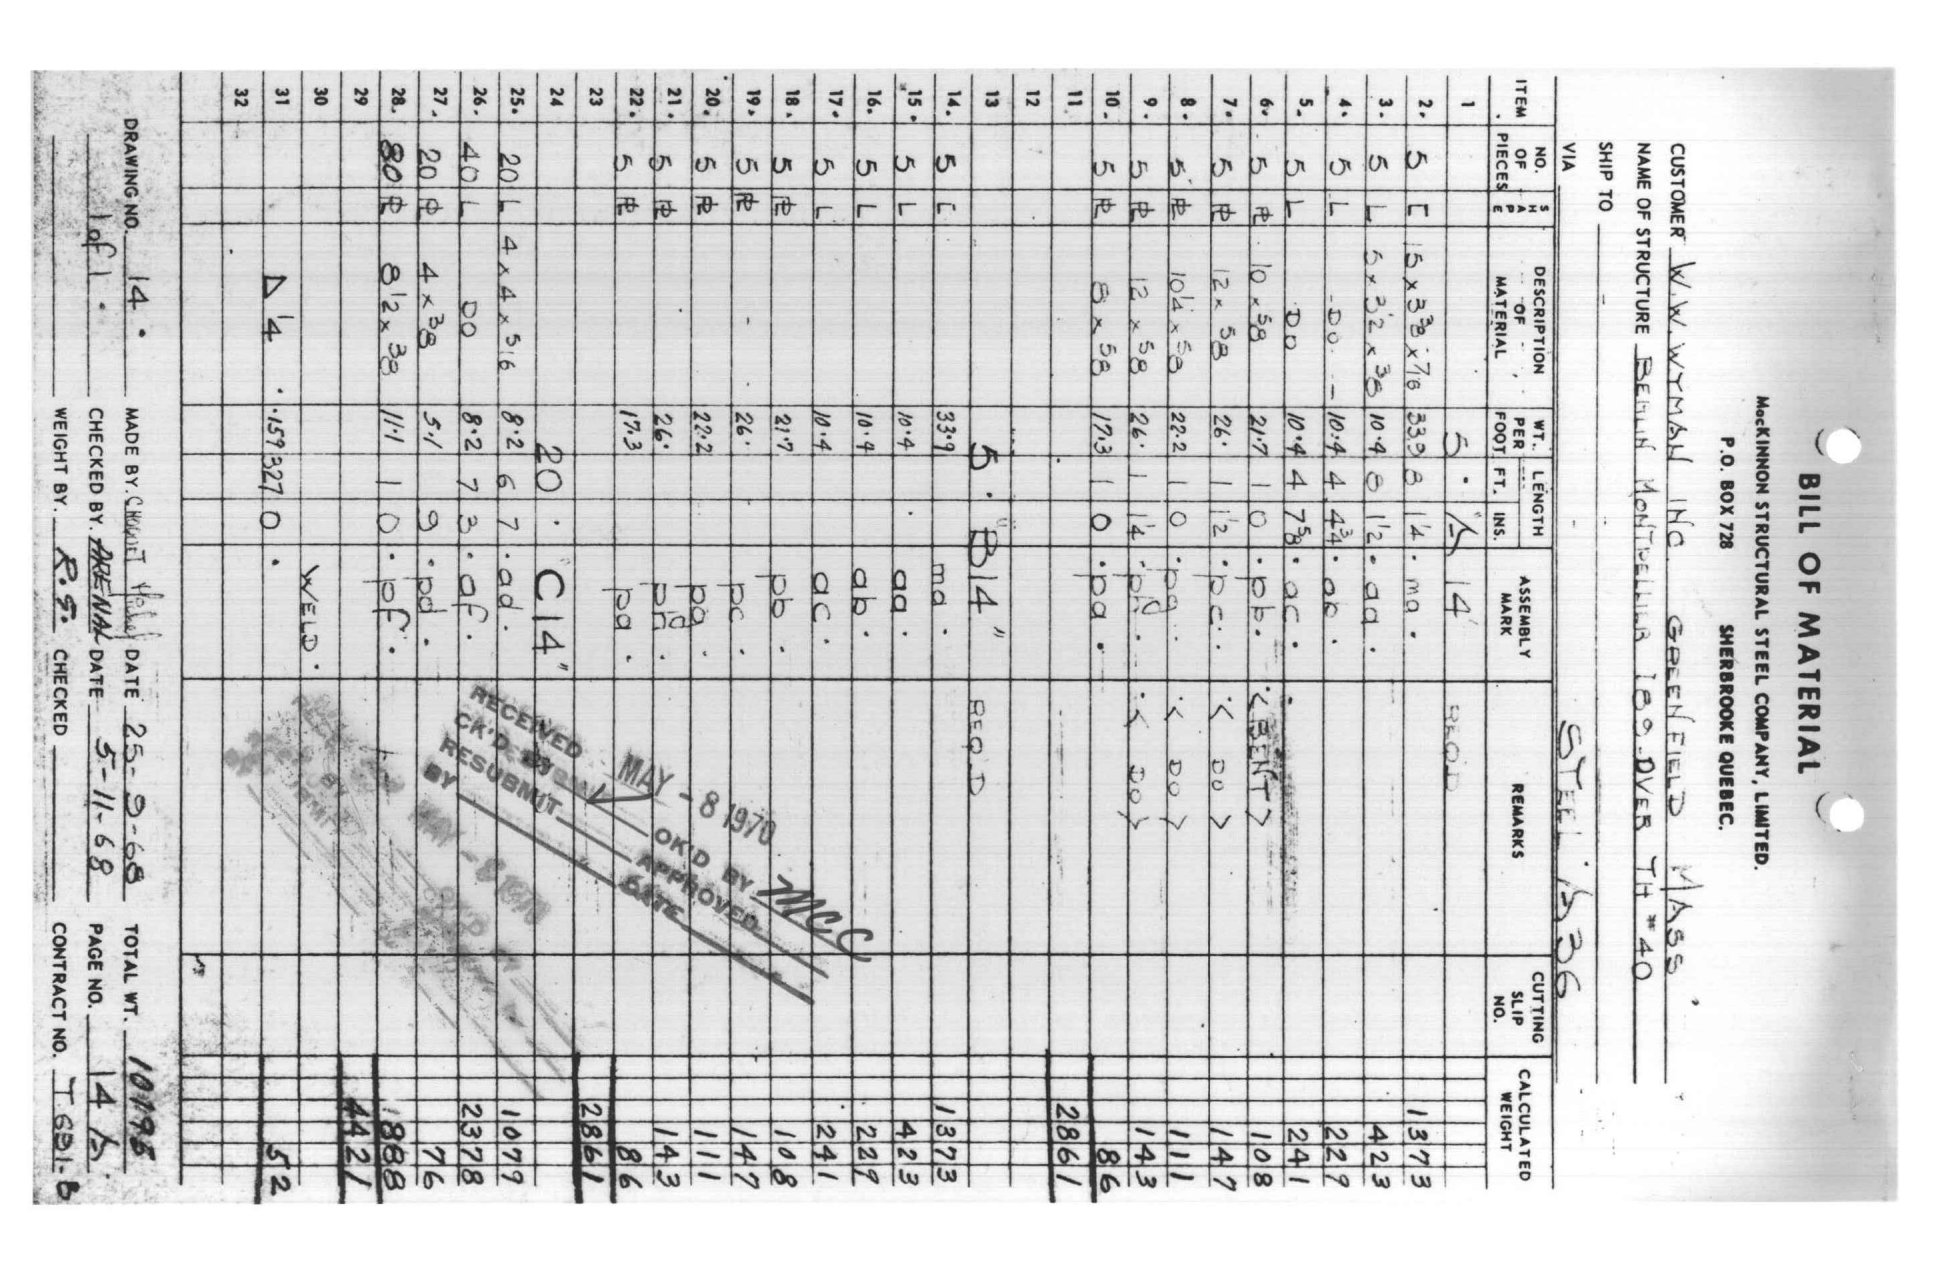 BILL OF MATERIAL
MacKINNON STRUCTURAL STEEL COMPANY, LIMITED.
P.O. BOX 728 SHERBROOKE QUEBEC.
CUSTOMER W.W. WYMAN INC. GREENFIELD MASS
NAME OF STRUCTURE BERLIN MONTPELLIER 189. OVER TH #40
SHIP TO
VIA STEEL A36
ITEM NO. OF PIECES SHAPE DESCRIPTION OF MATERIAL WT. PER FOOT LENGTH FT. INS. ASSEMBLY MARK REMARKS CUTTING SLIP NO. CALCULATED WEIGHT
1 5 . "A 14" REQ.D
2. 5 [ 15 x 3 3/8 x 7/16 33.9 8 1 1/4 . ma . 1373
3. 5 L 5 x 3 1/2 x 3/8 10.4 8 1 1/2 . aa . 423
4. 5 L - DO. - 10.4 4 4 3/4 . ab . 229
5. 5 L DO 10.4 4 7 5/8 . ac . 241
6. 5 PL 10 x 5/8 21.7 1 0 . pb . < BENT > 108
7. 5 PL 12 x 5/8 26. 1 1 1/2 . pc . < DO > 147
8. 5 PL 10 1/4 x 5/8 22.2 1 0 . pg . < DO > 111
9. 5 PL 12 x 5/8 26. 1 1 1/4 . ph . < DO > 143
10. 5 PL 8 x 5/8 17.3 1 0 . pa . 86
11 2861
12
13 5 . "B14" REQ.D
14. 5 [ 33.9 ma . 1373
15. 5 L 10.4 aa . 423
16. 5 L 10.4 ab . 229
17. 5 L 10.4 ac . 241
18. 5 PL 21.7 pb . 108
19. 5 PL 26. pc . 147
20. 5 PL 22.2 pg . 111
21. 5 PL 26. ph . 143
22. 5 PL 17.3 pa . 86
23 2861
24 20 . "C14"
25. 20 L 4 x 4 x 5/16 8.2 6 7 . ad . 1079
26. 40 L DO 8.2 7 3 . af . 2378
27. 20 PL 4 x 3/8 5.1 9 . pd . 76
28. 80 PL 8 1/2 x 3/8 11.1 1 0 . pf . 888
29 4421
30 WELD .
31 Δ 1/4 .159 327 0 . 52
32
RECEIVED MAY - 8 1970
CK'D BY OK'D BY MCC
RESUBMIT APPROVED
BY DATE
MAY - 8 1970
DRAWING NO. 14 . MADE BY. DATE 25-9-68 TOTAL WT. 10195
1 of 1 . CHECKED BY. ARENAL DATE 5-11-68 PAGE NO. 14 A
WEIGHT BY. R.G. CHECKED CONTRACT NO. T 681-B